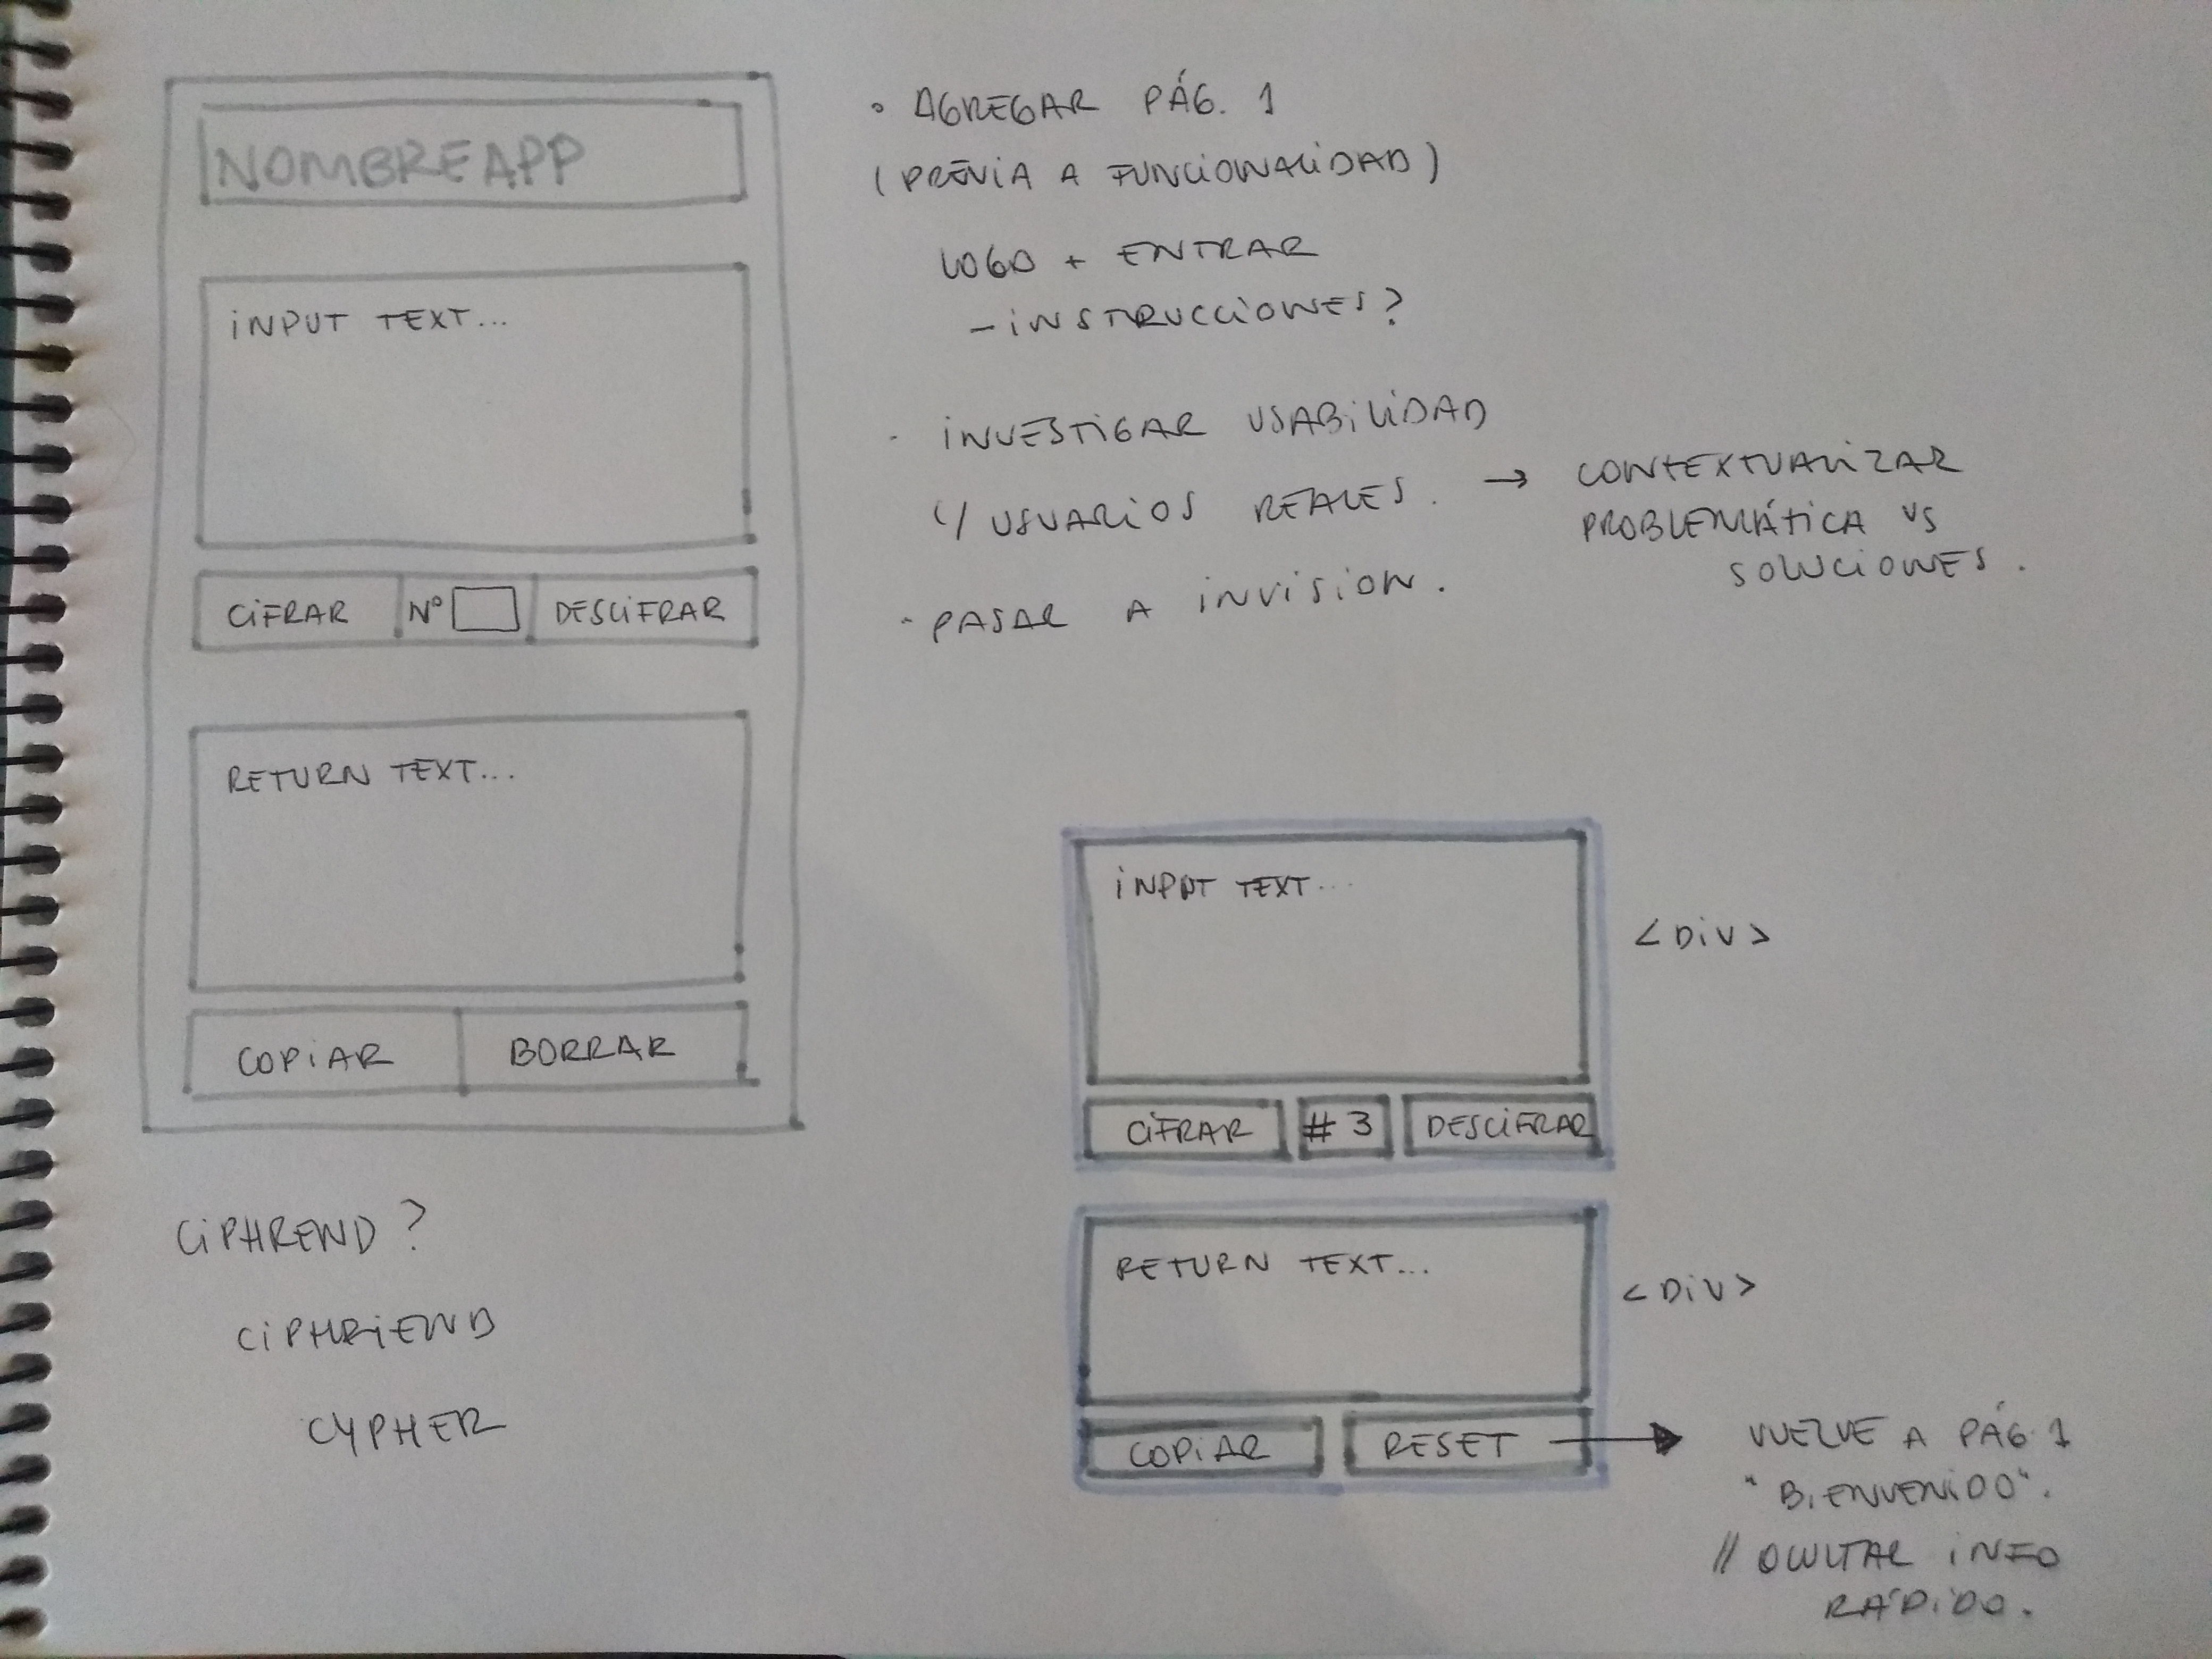 NOMBREAPP
INPUT TEXT...
CIFRAR Nº DESCIFRAR
RETURN TEXT...
COPIAR BORRAR
CIPHREND?
CIPHRIEND
CYPHER
• AGREGAR PÁG. 1
(PREVIA A FUNCIONALIDAD)
LOGO + ENTRAR
- INSTRUCCIONES?
· INVESTIGAR USABILIDAD
C/ USUARIOS REALES. → CONTEXTUALIZAR
PROBLEMÁTICA VS
SOLUCIONES.
· PASAR A INVISION.
INPUT TEXT...
<DIV>
CIFRAR # 3 DESCIFRAR
RETURN TEXT...
<DIV>
COPIAR RESET → VUELVE A PÁG 1
"BIENVENIDO".
// OCULTAR INFO
RÁPIDO.